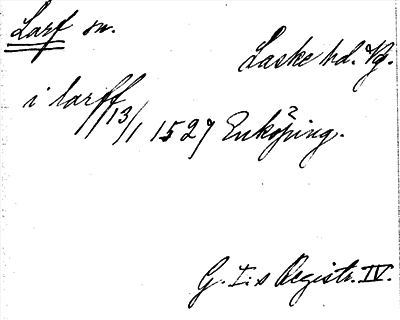 Larf sn.
Laske hd. Vg.
i larff 13/1 1527 Enköping.
G. I:s Registr. IV.